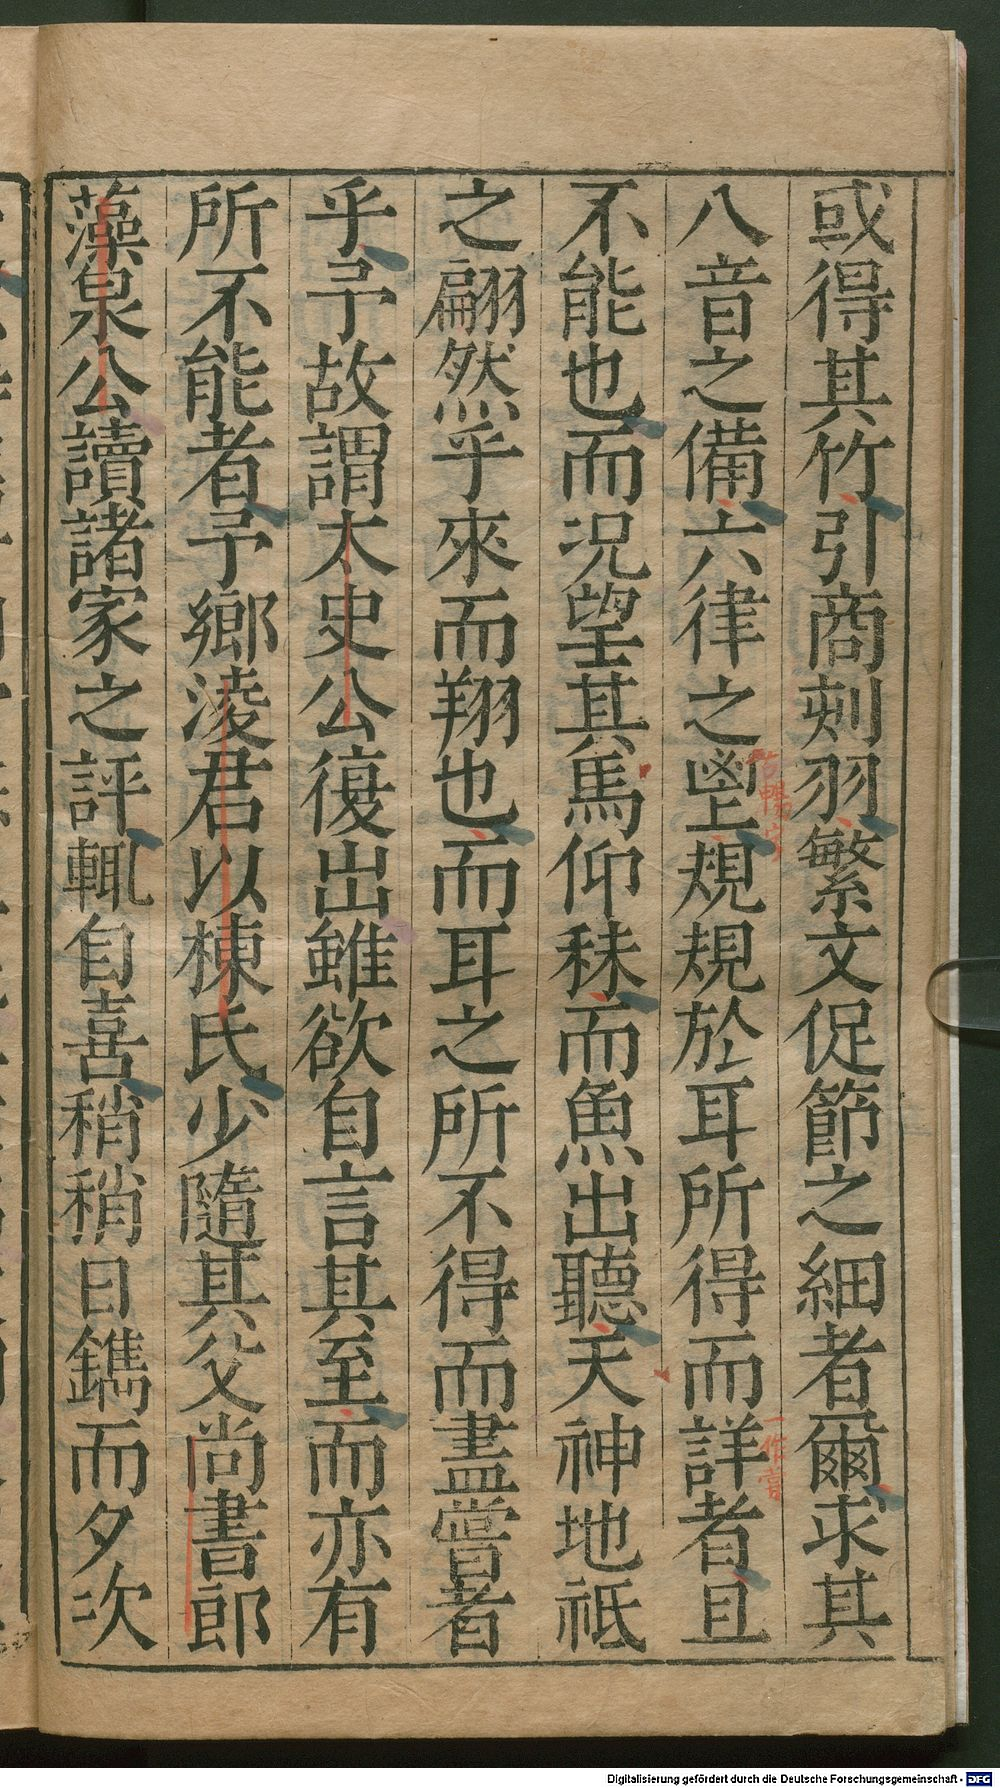 或得其竹引商刻羽繁文促節之細者爾求其
八音之備六律之鬯規規於耳所得而詳者且
不能也而况望其馬仰秣而魚出聽天神地祇
之翩然乎來而翔也而耳之所不得而盡嘗者
乎予故謂太史公復出雖欲自言其至而亦有
所不能者予鄉淩君以棟氏少隨其父尚書郎
藻泉公讀諸家之評輒自喜稍稍日鐫而夕次
一作音
Digitalisierung gefördert durch die Deutsche Forschungsgemeinschaft - DFG